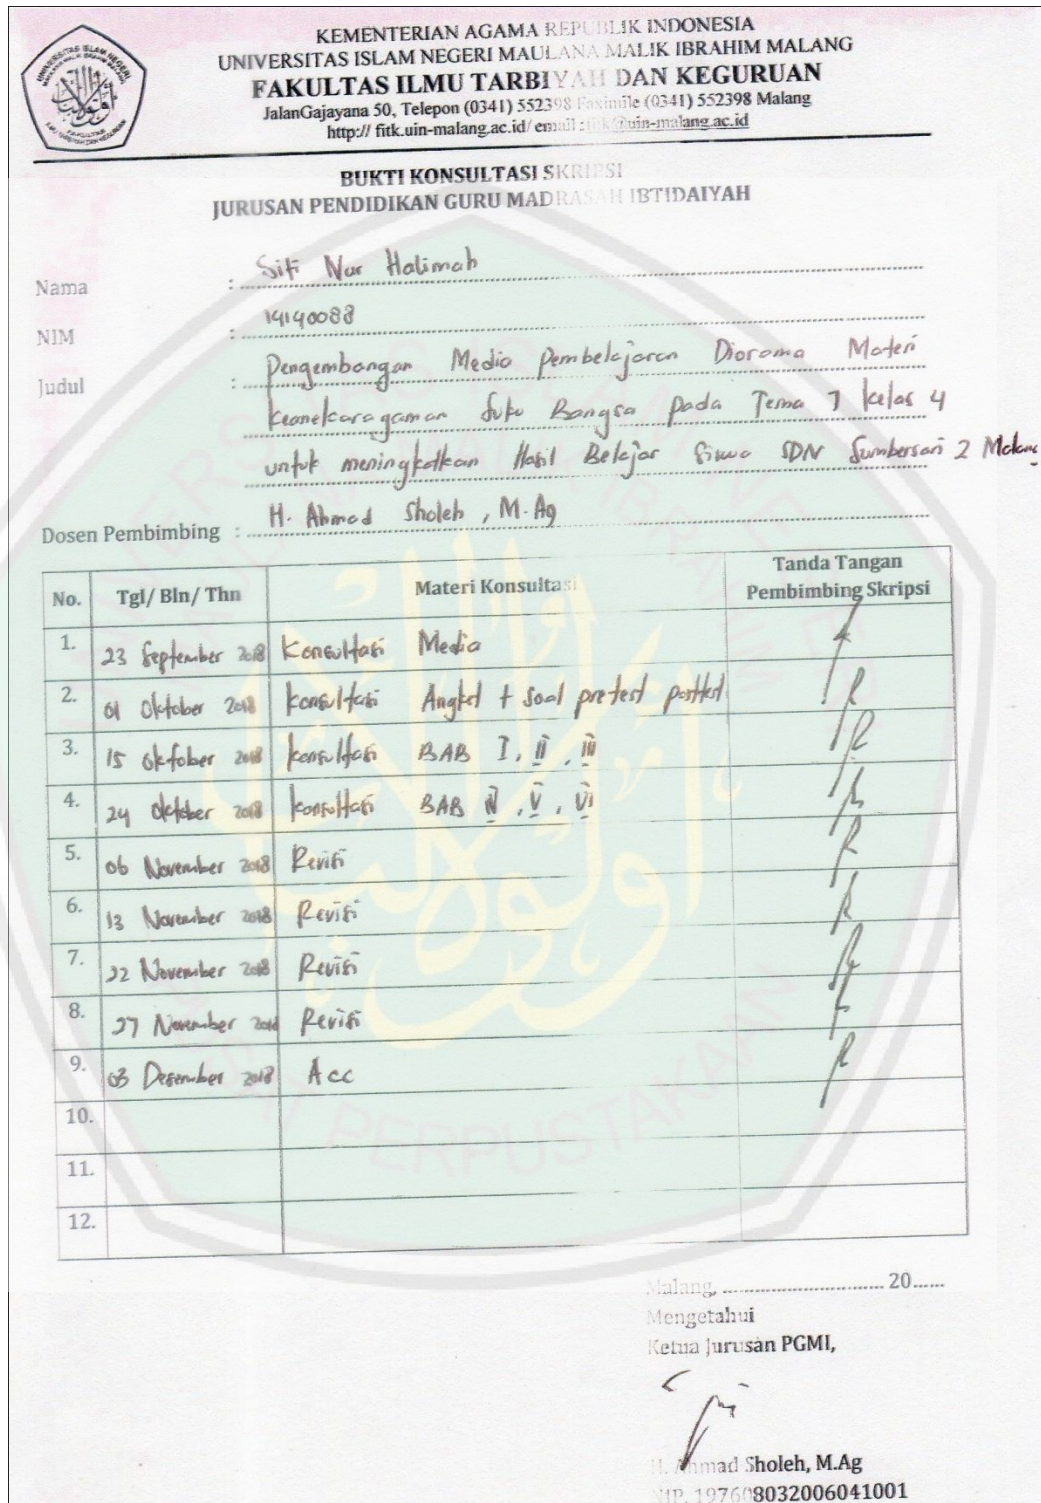 KEMENTERIAN AGAMA REPUBLIK INDONESIA
UNIVERSITAS ISLAM NEGERI MAULANA MALIK IBRAHIM MALANG
FAKULTAS ILMU TARBIYAH DAN KEGURUAN
JalanGajayana 50, Telepon (0341) 552398 Faximile (0341) 552398 Malang
http:// fitk.uin-malang.ac.id/ email : fitk@uin-malang.ac.id
BUKTI KONSULTASI SKRIPSI
JURUSAN PENDIDIKAN GURU MADRASAH IBTIDAIYAH
Nama : Siti Nur Halimah
NIM : 14140088
Judul : Pengembangan Media Pembelajaran Diorama Materi
keanekaragaman Suku Bangsa pada Tema 7 kelas 4
untuk meningkatkan Hasil Belajar Siswa SDN Sumbersari 2 Malang
Dosen Pembimbing : H. Ahmad Sholeh, M.Ag
No. Tgl/ Bln/ Thn Materi Konsultasi Tanda Tangan Pembimbing Skripsi
1. 23 September 2018 Konsultasi Media
2. 01 Oktober 2018 konsultasi Angket + Soal pretest posttest
3. 15 Oktober 2018 konsultasi BAB I, II, III
4. 24 Oktober 2018 konsultasi BAB IV, V, VI
5. 06 November 2018 Revisi
6. 13 November 2018 Revisi
7. 22 November 2018 Revisi
8. 27 November 2018 Revisi
9. 03 Desember 2018 Acc
10.
11.
12.
Malang, ............................ 20......
Mengetahui
Ketua Jurusan PGMI,
H. Ahmad Sholeh, M.Ag
NIP. 197608032006041001
PERPUSTAKAAN